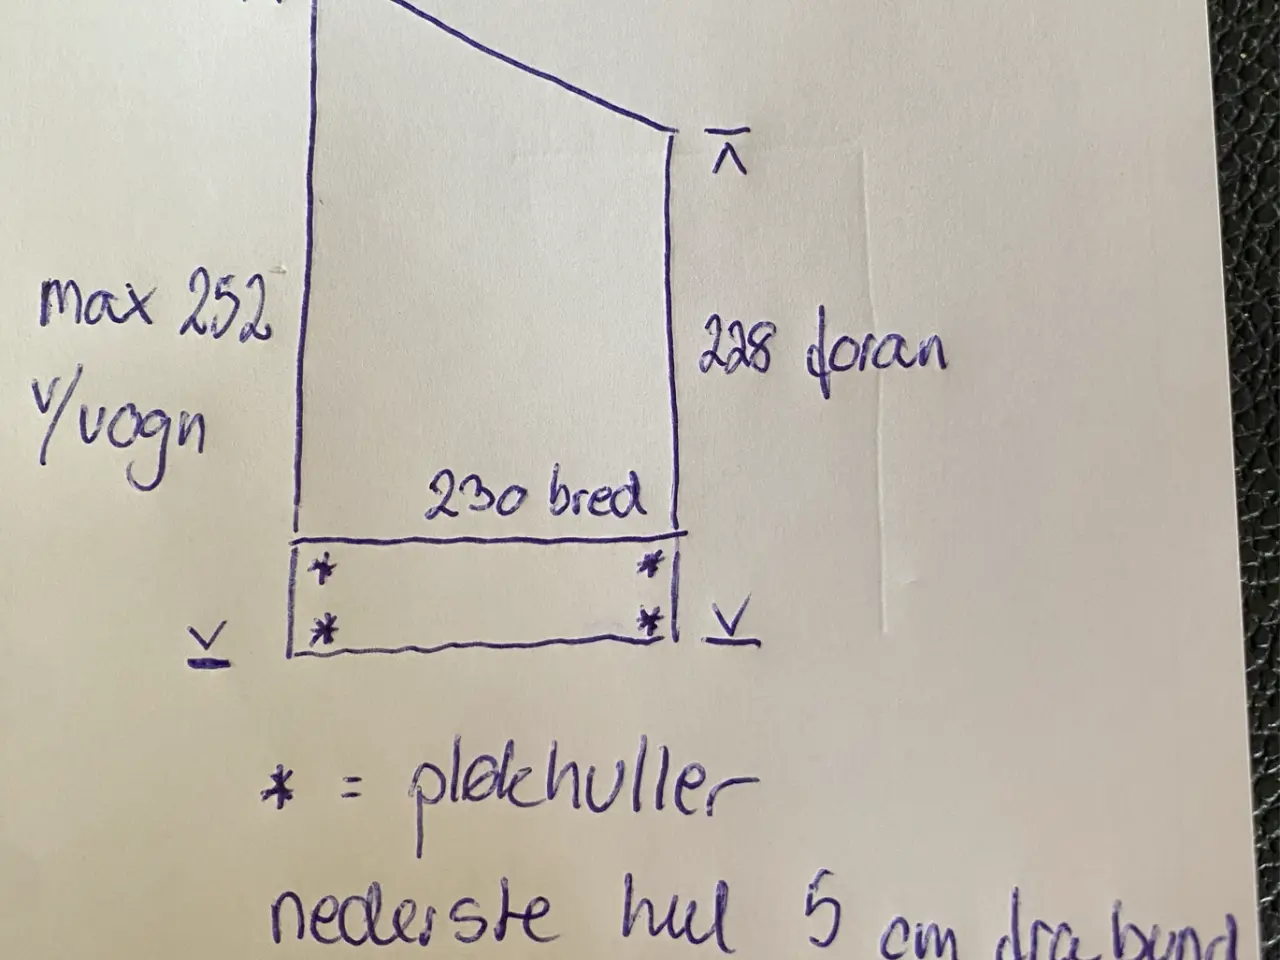 max 252
v/vogn
228 foran
230 bred
* *
* *
* = pløkhuller
nederste hul 5 cm fra bund